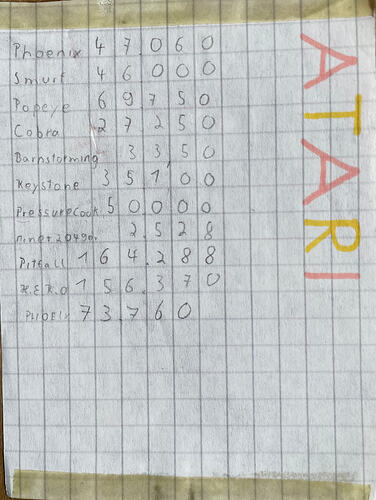 Phoenix 4 7 0 6 0
Smurf 4 6 0 0 0
Popeye 6 9 7 5 0
Cobra 2 7 2 5 0
Barnstorming 3 3, 5 0
Keystone 3 5 1, 0 0
Pressure Cook. 5 0 0 0 0
2. 5 2 8
Pitfall 1 6 4. 2 8 8
H.E.R.O 1 5 6. 3 7 0
7 3. 7 6 0
ATARI